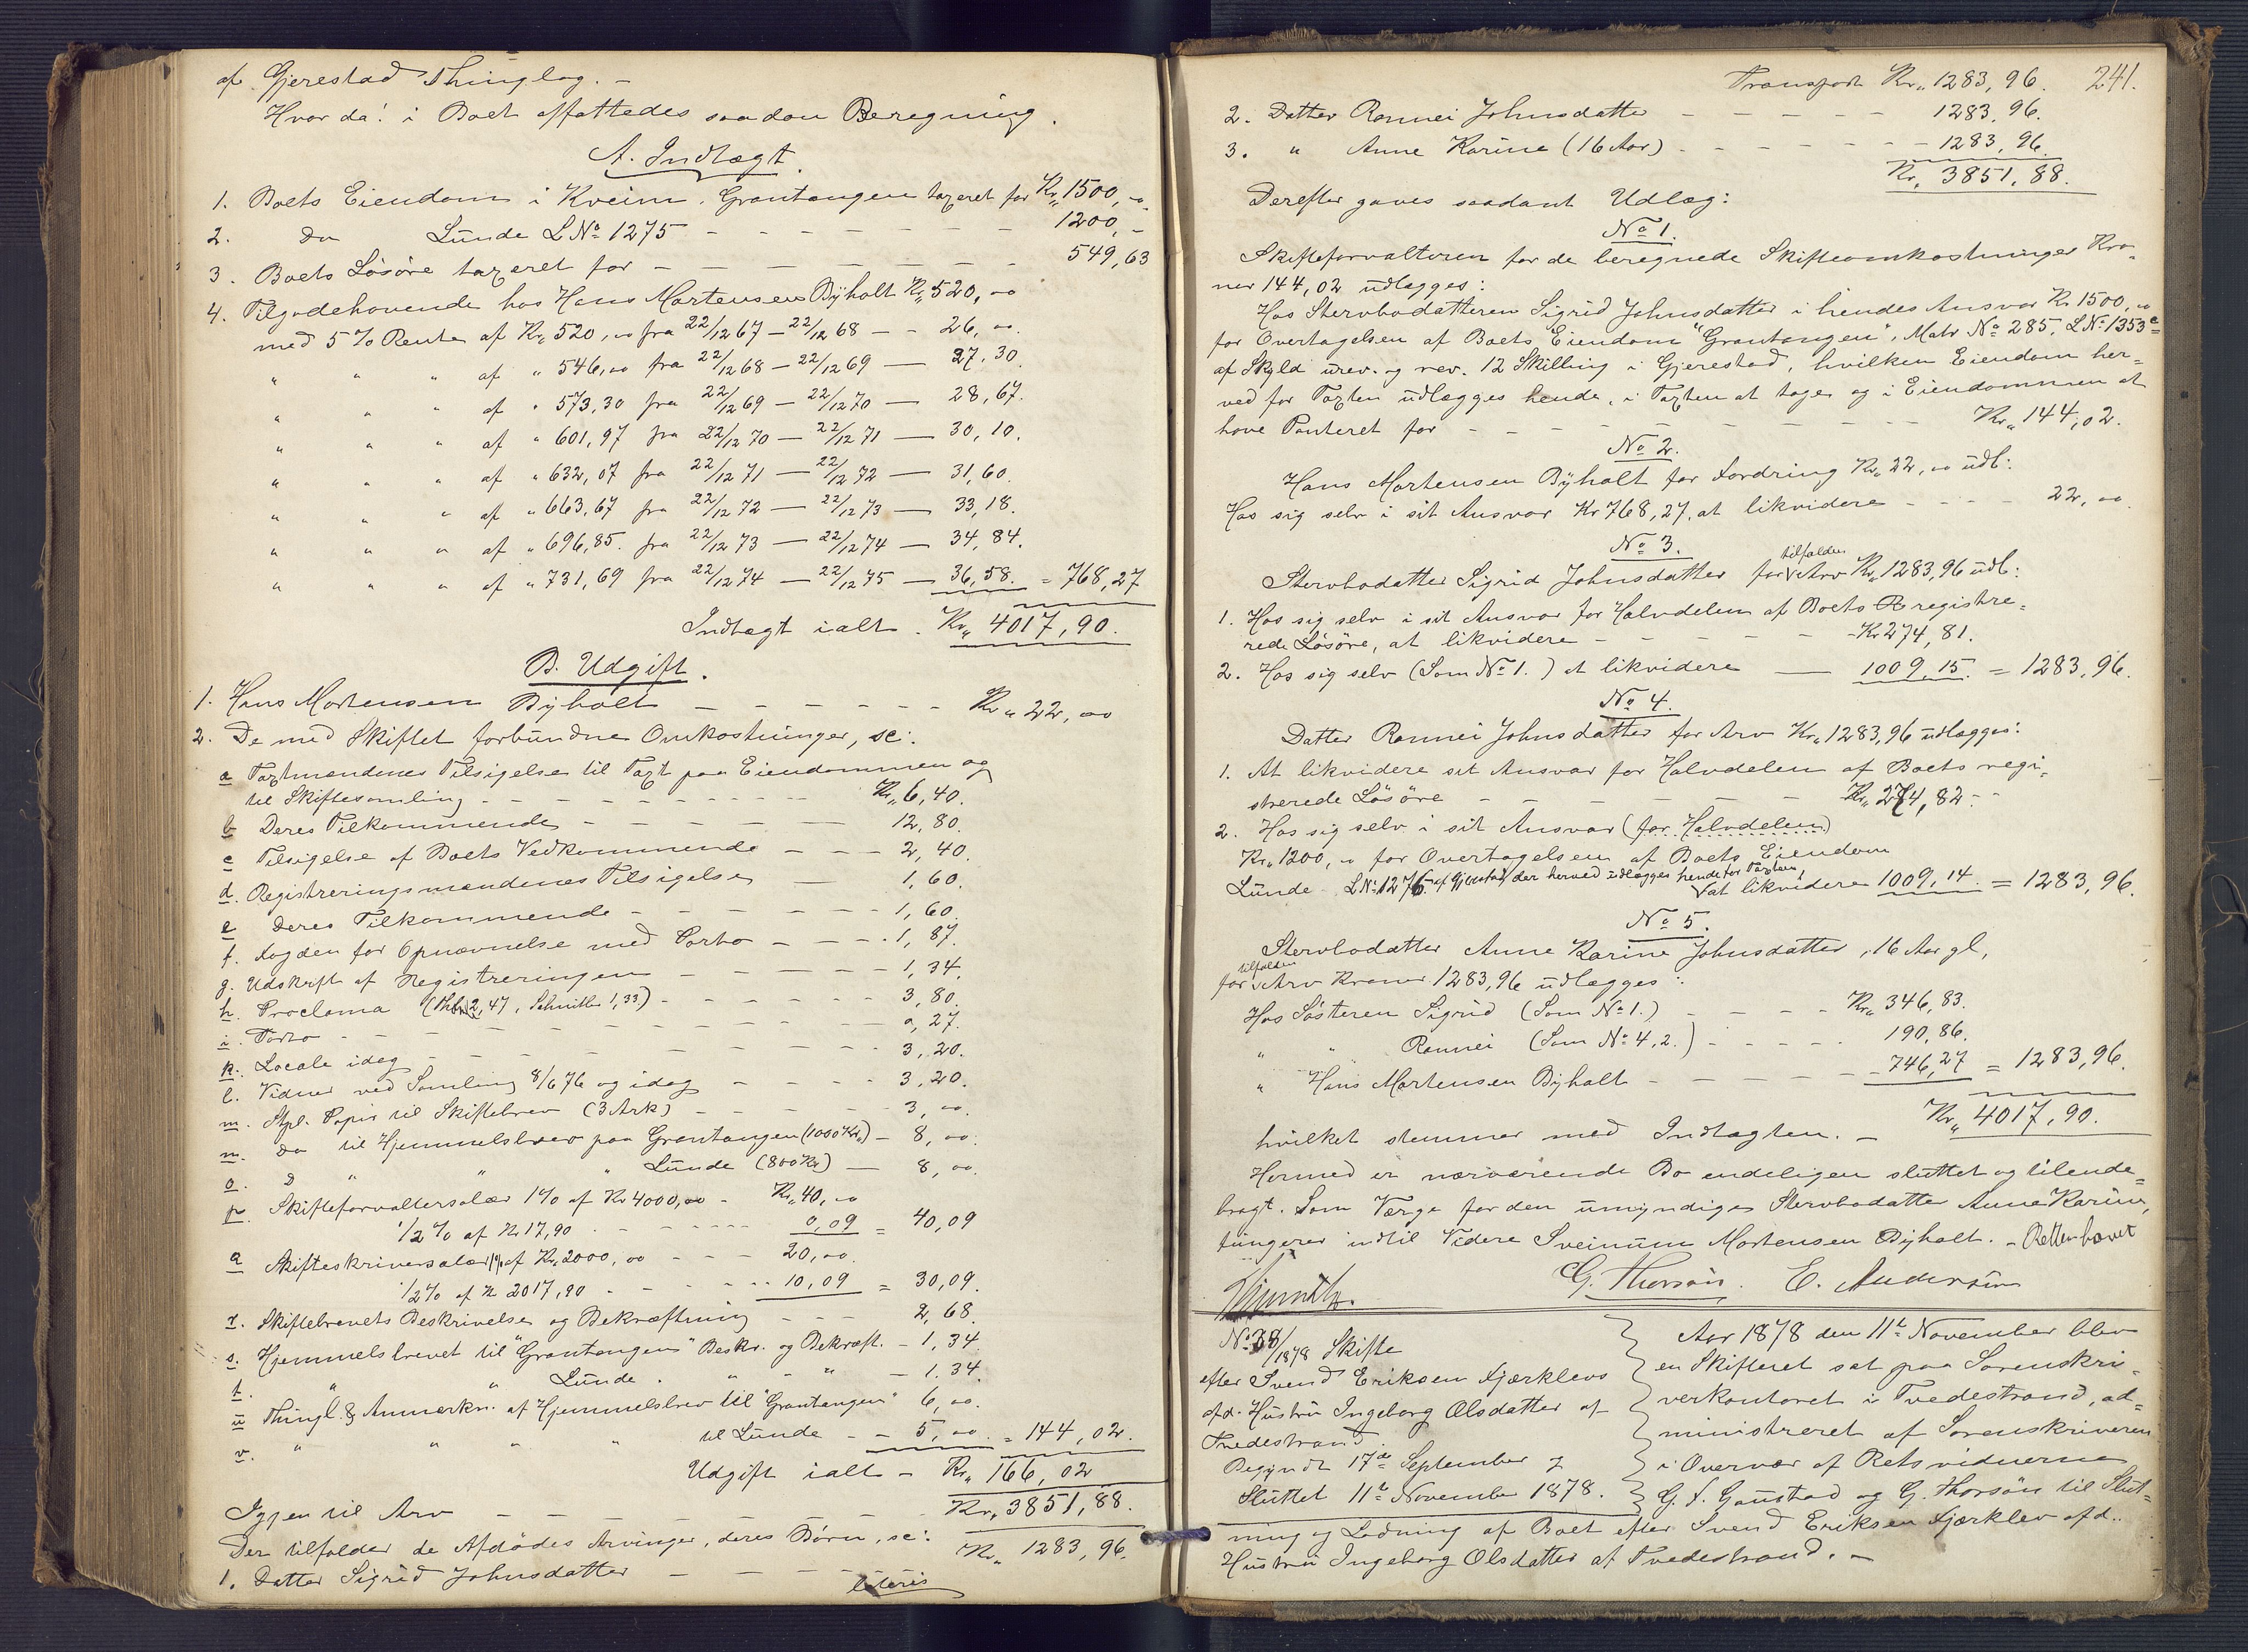 af Gjerestad Thinglag. –
Hvor da! i Boet affattedes saadan Beregning.
A. Indtægt.
1. Boets Eiendom i Kveim, Grantangen taxeret for Kr„ 1500,„
2. Do Lunde L№ 1275 – – – – – – 1200,–
3. Boets Løsøre taxeret for – – – – – – 549,63
4. Tilgodehavende hos Hans Mortensen Byholt Kr„ 520,„
med 5 % Rente af Kr„ 520,„ fra 22/12 67 – 22/12 68 – – 26,„
„ „ „ af „ 546,„ fra 22/12 68 – 22/12 69 – 27,30
„ „ „ af „ 573,30 fra 22/12 69 – 22/12 70 – 28,67.
„ „ „ af „ 601,97 fra 22/12 70 – 22/12 71 – 30,10.
„ „ „ af „ 632,07 fra 22/12 71 – 22/12 72 – 31,60.
„ „ „ af „ 663,67 fra 22/12 72 – 22/12 73 – 33,18.
„ „ „ af „ 696,85. fra 22/12 73 – 22/12 74 – 34,84.
„ „ „ af „ 731,69 fra 22/12 74 – 22/12 75 – 36,58. = 768,27
Indtægt ialt. Kr„ 4017,90.
B. Udgift.
1. Hans Mortensen Byholt – – – – – – Kr„ 22,„
2. De med Skiftet forbundne Omkostninger, sc:
a Taxtmændenes Tilsigelse til Taxt paa Eiendommen og
til Skiftesamling – – – – – – Kr„ 6,40.
b Deres Tilkommende – – – – – 12,80.
c Tilsigelse af Boets Vedkommende – – – 2,40.
d. Registreringsmændenes Tilsigelse – 1,60.
e Deres Tilkommende – – – – – 1,60.
f. Fogden for Opnævnelse med Porto – – – 1,87.
g. Udskrift af Registreringen – – – – 1,34.
h. Proclama (2,47, Schmitler 1,33) – – – – 3,80.
i. Porto – – – – – – – – 0,27.
k. Locale idag – – – – – – – 3,20.
l. Vidner ved Samling 8/6 76 og idag – – – 3,20.
m. Stpl. Papir til Skiftebrev (3 Ark) – – – – 3,„
n. Do til Hjemmelsbrev paa Grantangen (1000 Kr„) – 8,„
o. D „ „ „ Lunde (800 Kr) – 8,„
p. Skifteforvaltersalær 1% af Kr 4000,„ – Kr„ 40,„
1/2 % af Kr 17,90 – – – – 0,09 = 40,09
q Skifteskriversalær 1% af Kr„ 2000,„ – – – 20,„
1/2 % af Kr 2017,90 – – – – 10,09 = 30,09.
r. Skiftebrevets Beskrivelse og Bekræftning – – – 2,68.
s. Hjemmelsbrevet til "Grantangen" Beskr. og Bekræft. – 1,34.
t. „ „ Lunde. „ – „ – 1.34.
u Thingl. & Anmerkn. af Hjemmelsbrev til "Grantangen" 6,„
v. „ „ „ „ til Lunde – – 5,„ = 144,02.
Udgift ialt – Kr„ 166,02
Igjen til Arv – – – – – – – Kr„ 3851,88.
Der tilfalder de Afdødes Arvinger, deres Børn, sc:
1. Datter Sigrid Johnsdatter – – – Kr„ 1283,96.
lateris
Transport Kr„ 1283,96. 241.
2. Datter Rannei Johnsdatter – – – – – 1283,96.
3. „ Anne Karine (16 Aar) – – – – – 1283,96.
Kr„ 3851,88.
Derefter gaves saadant Udlæg:
№ 1.
Skifteforvalteren for de beregnede Skifteomkostninger Kro=
ner 144,02 udlægges:
Hos Stervbodatteren Sigrid Johnsdatter i hendes Ansvar Kr 1500,„
for Overtagelsen af Boets Eiendom "Grantangen", Matr № 285, L№ 1353e
af Skyld urev. og rev. 12 Skilling i Gjerestad, hvilken Eiendom her=
ved for Taxten udlægges hende, i Taxten at tage og i Eiendommen at
have Panteret for – – – – – – – – Kr„ 144,02.
№ 2.
Hans Mortensen Byholt for Fordring Kr„ 22,„ udl:
Hos sig selv i sit Ansvar Kr 768,27, at likvidere – – – – 22,„
№ 3.
Stervbodatter Sigrid Johnsdatter for tilfalden Arv Kr„ 1283,96 udl:
1. Hos sig selv i sit Ansvar for Halvdelen af Boets Registre=
rede Løsøre, at likvidere – – – – – – Kr 274,81.
2. Hos sig selv (Som № 1.) at likvidere – 1009,15. = 1283,96.
№ 4.
Datter Rannei Johnsdatter for Arv Kr„ 1283,96 udlægges:
1. At likvidere sit Ansvar for Halvdelen af Boets regi=
strerede Løsøre – – – – – – Kr„ 274,82. –
2. Hos sig selv i sit Ansvar (for Halvdelen)
Kr„ 1200,„ for Overtagelsen af Boets Eiendom
Lunde L№ 1275 af Gjerestad, der herved udlægges hende for Taxten, at likvidere 1009,14. = 1283,96.
№ 5.
Stervbodatter Anne Karine Johnsdatter, 16 Aar gl,
for tilfalden Arv Kroner 1283,96 udlægges:
Hos Søsteren Sigrid (Som № 1.) – – – – Kr„ 346,83.
„ „ Rannei (Som № 4, 2.) – – – – – 190,86.
„ Hans Mortensen Byholt – – – – – 746,27 = 1283,96.
Kr„ 4017,90.
hvilket stemmer med Indtægten. –
Hermed er nærværende Bo endeligen sluttet og tilende=
bragt. Som Værge for den umyndige Stervbodatter Anne Karine,
fungerer indtil Videre Sveinum Mortensen Byholt. – Retten hævet
G. Thorsøn. E. Andersen
№ 38/1878 Skifte
efter Svend Eriksen Fjærklevs
afd. Hustru Ingeborg Olsdatter af
Tvedestrand
Begyndt 17de September &
Sluttet 11te November 1878.
Aar 1878 den 11te November blev
en Skifteret sat paa Sorenskri=
verkontoret i Tvedestrand, ad=
ministreret af Sorenskriveren
i Overvær af Retsvidnerne
G. F. Gaustad og G. Thorsøn til Slut=
ning og Lodning af Boet efter Svend Eriksen Fjærklev afd.
Hustru Ingeborg Olsdatter af Tvedestrand. –